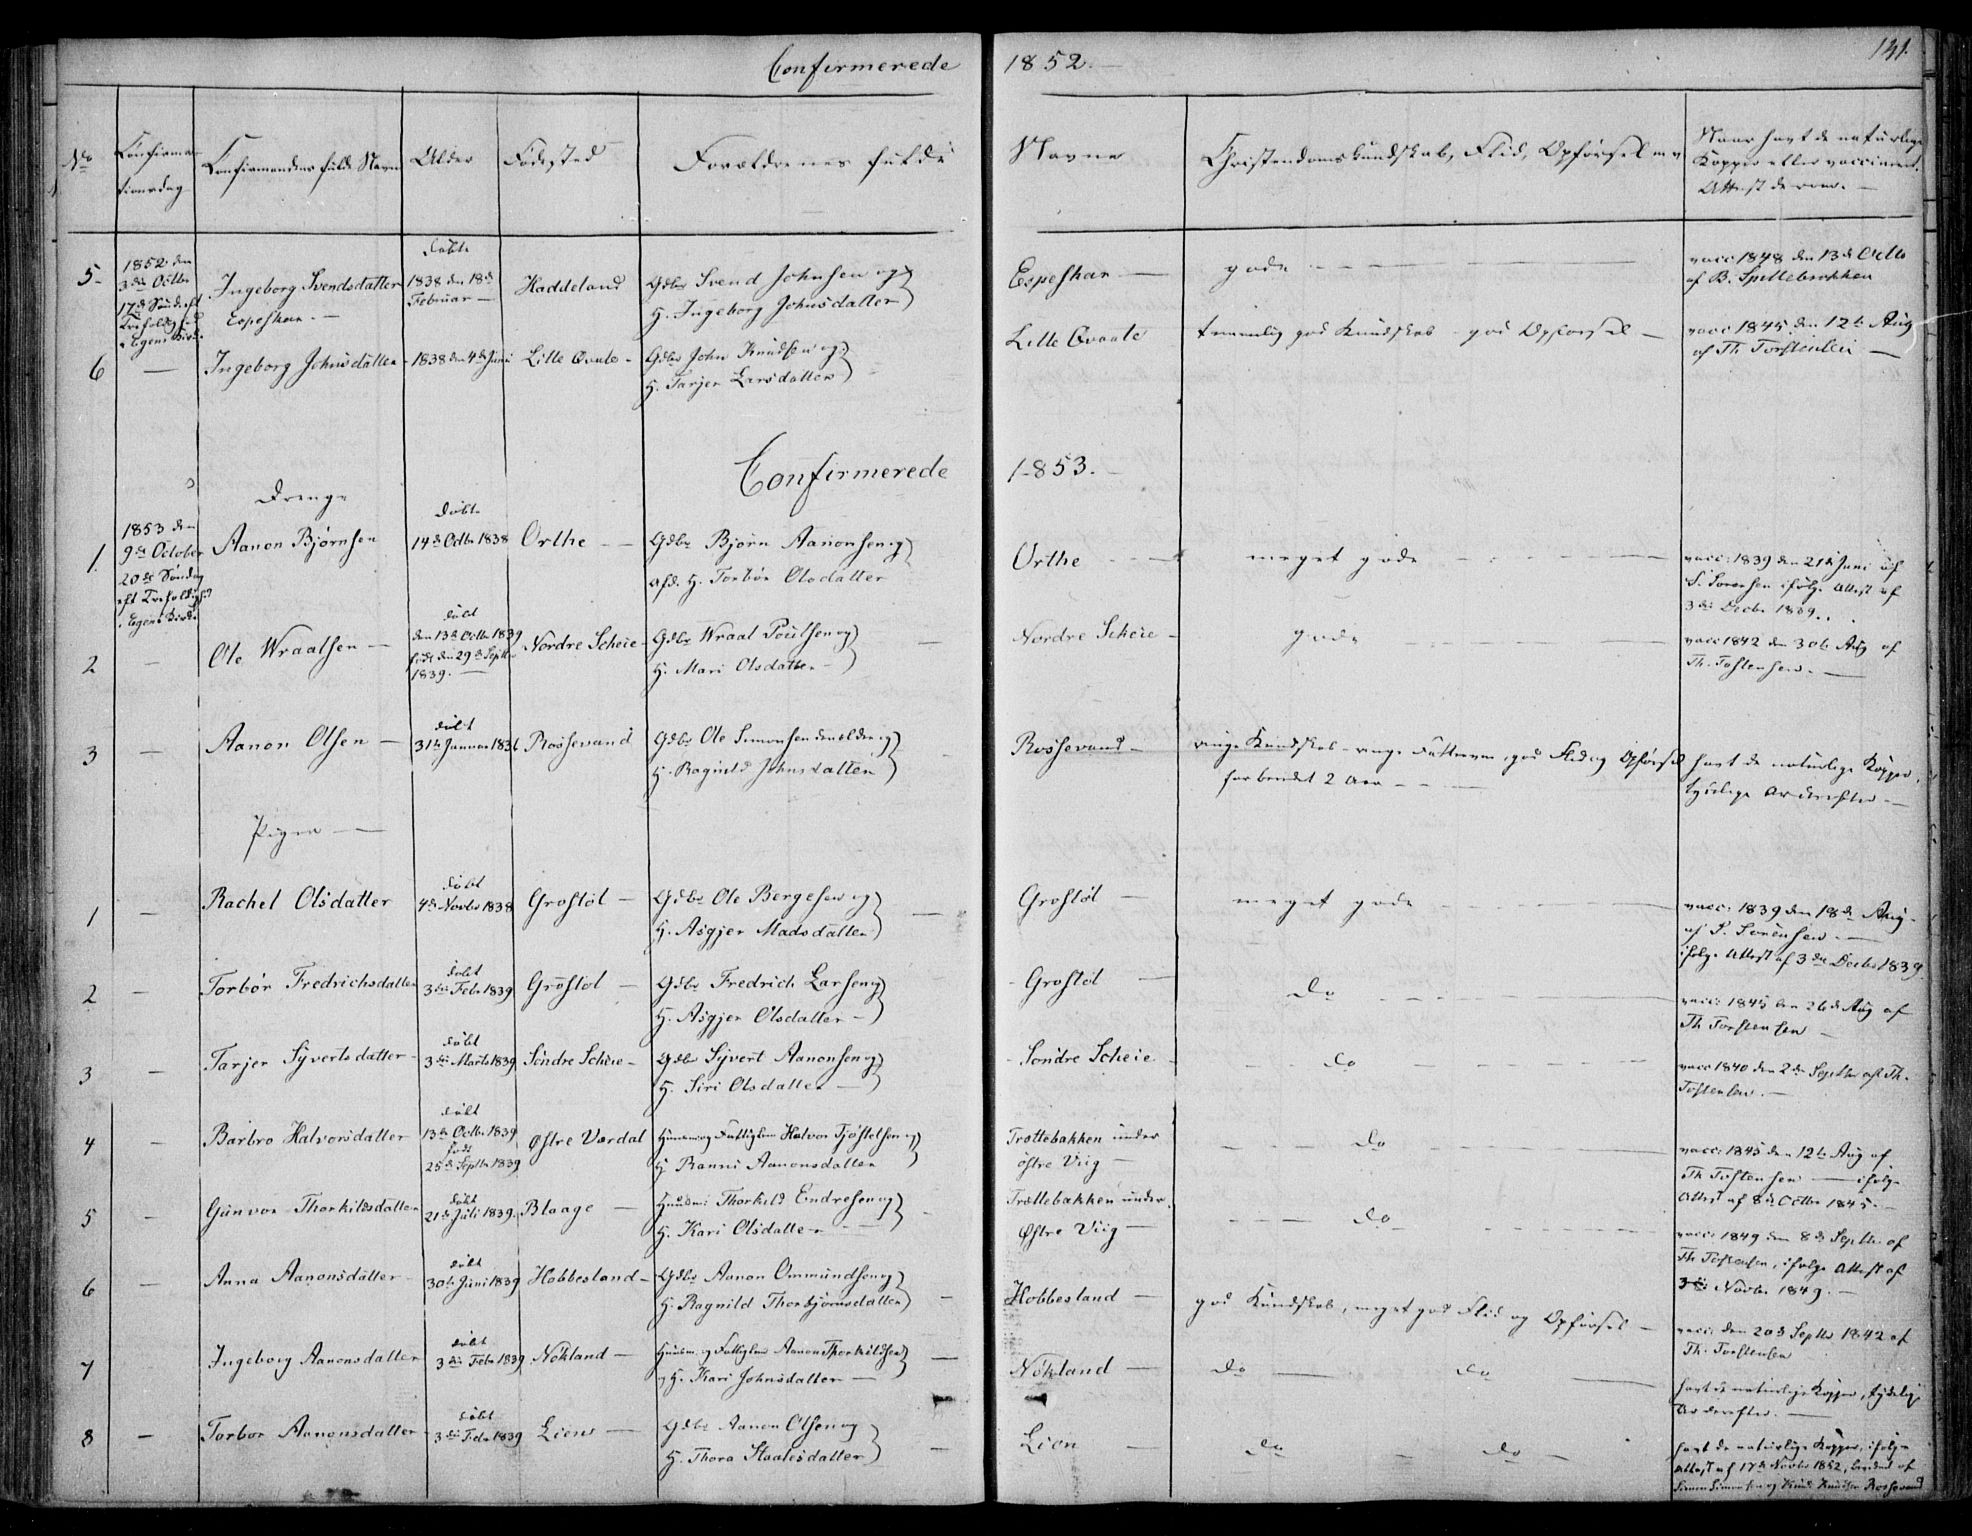 Confirmerede 1852.
141.
No
Confirma-
tionsdag
Confirmandens fulde Navn
Alder
Fødested
Forældrenes fulde
Navne
Christendomskundskab, Flid, Opførsel m v
Naar havt de naturlige
Kopper eller vaccineret.
Attest derom.
5
1852 den
3die Octbr
17de Sønd. eft
Trefoldighed
i Egens Kirke
Ingeborg Svendsdatter
Espeskar.
døbt
1838 den 18de
Februar
Haddeland
Gdbr Svend Johnsen og
H. Ingeborg Johnsdatter
Espeskar
gode
vacc 1848 den 13de Octbr
af B. Spillebrokken
6
Ingeborg Johnsdatter
1838 den 4de Juni
Lille Qvaale
Gdbr John Knudsen og
H. Tarjer Larsdatter
Lille Qvaale
temmelig god Kundskab god Opførsel
vacc 1845 den 12te Aug
af Th Torstensen
Confirmerede 1853.
Drenge
1
1853 den
9de October
20de Søndag
eft Trefoldigh.
i Egens Kirke
Aanon Bjørnsen
døbt
14de Octbr 1838
Orthe
Gdbr Bjørn Aanonsen og
afd. H. Torbør Olsdatter
Orthe
meget gode
vacc: 1839 den 21de Juni af
S. Sørensen ifølge Attest af
3die Decbr 1839.
2
Ole Wraalsen
døbt
den 13de Octbr 1839
født den 29de Septbr
1839.
Nordre Scheie
Gdbr Wraal Poulsen og
H. Mari Olsdatter
Nordre Scheie
gode
vacc 1842 den 30te Aug af
Th. Tostensen.
3
Aanon Olsen
døbt
31te Januar 1836
Rossevand
Gdbr Ole Simonsen den ældre og
H. Ragnild Johnsdatter
Rossevand
ringe Kundskab - ringe Fatteevne, god Flid og Opførsel
forberedet 2 Aar
havt de naturlige Kopper,
tydelige Ar derefter
Piger
1
Rachel Olsdatter
døbt
4de Novbr 1838
Grostøl
Gdbr Ole Bergesen og
H. Asgjer Madsdatter
Grostøl
meget gode
vacc: 1839 den 18de Aug
af S. Sørensen
ifølge Attest af 3die Decbr 1839
2
Torbør Fredrichsdatter
døbt
3die Febr 1839
Grostøl
Gdbr Fredrich Larsen og
H. Asgjer Olsdatter
Grostøl
Do
vacc: 1845 den 26de Aug af
Th Torstensen
3
Tarjer Syvertsdatter
døbt
3die Marts 1839
Søndre Scheie
Gdbr Syvert Aanonsen og
H. Siri Olsdatter
Søndre Scheie
Do
vacc 1840 den 2den Septbr af Th.
Tostensen.
4
Barbro Halvorsdatter
døbt
13de Octbr 1839
født
25de Septbr 1839
Østre Værdal
Huusm og Fattiglem Halvor Tjøstelsen og
H. Ranni Aanonsdatter
Trættebakken under
østre Viig
Do
vacc: 1845 den 12te Aug af
Th Tostensen ifølge
Attest af 8de Octbr 1845.
5
Gunvor Thorkildsdatter
døbt
21de Juli 1839.
Blaage
Huusm: Thorkild Endresen og
H. Kari Olsdatter
Trættebakken under
Østre Viig
Do
vacc: 1849 den 8de Septbr af
Th Tostensen, ifølge Attest af
3die Novbr 1849.
6
Anna Aanonsdatter
døbt
30te Juni 1839
Hobbesland
Gdbr Aanon Ommundsen og
H. Ragnild Thorbjørnsdatter
Hobbesland
god Kundskab, meget god Flid og Opførsel
vacc. den 20de Septbr 1842 af
Th. Torstensen
7
Ingeborg Aanonsdatter
døbt
3die Febr 1839
Nøkland
Huusm. og Fattiglem Aanon Thorkildsen
og H. Kari Johnsdatter
Nøkland
Do Do
havt de naturlige Kopper, tydelige
Ar derefter.
8
Torbor Aanonsdatter
døbt
3die Febr 1839
Lien
Gdbr Aanon Olsen og
H. Thora Staalesdatter
Lien
Do Do
havt de naturlige Kopper, ifølge
Attest af 17de Novbr 1852, bevidnet af
Simon Simonsen og Knud Knudsen Rossevand